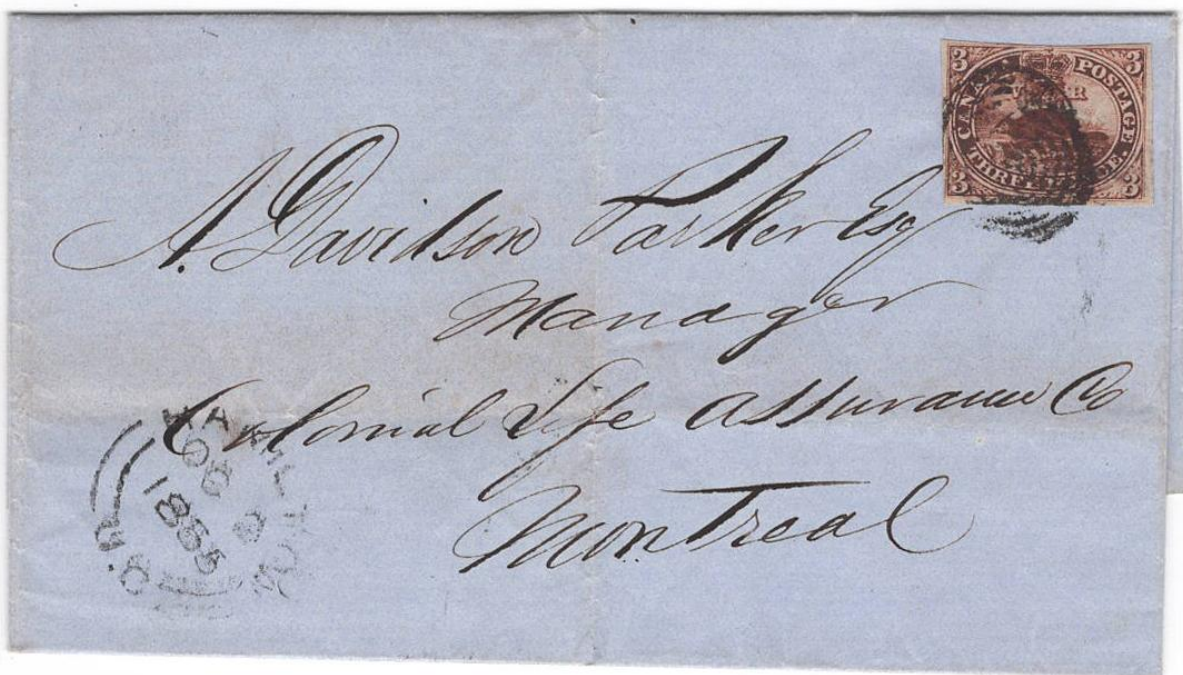 3 CANADA POSTAGE. 3
3 THREE PENCE. 3
A. Davidson Parker Esq
Manager
Colonial Life Assurance Co
Montreal
HAMILTON
1855
C.W.